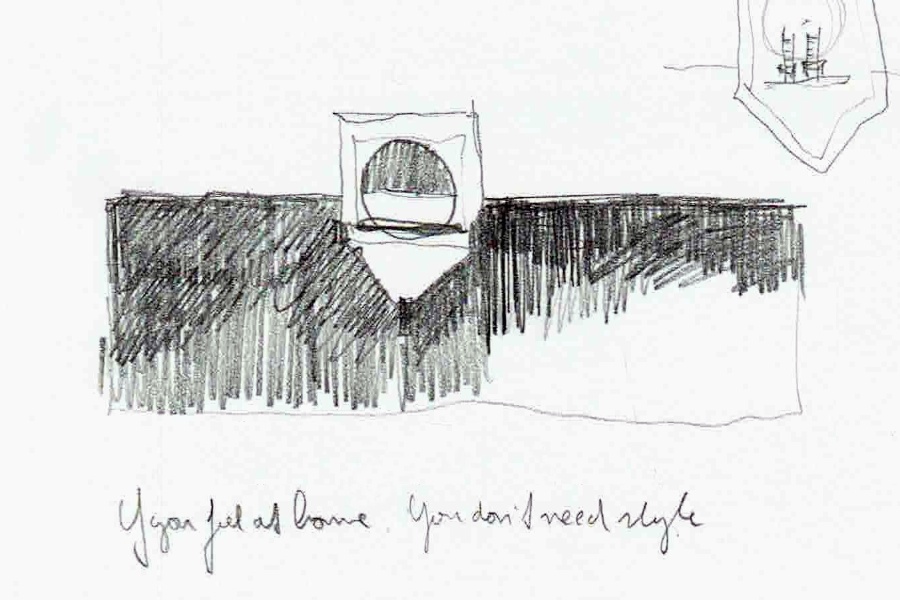 If you feel at home. You don't need style